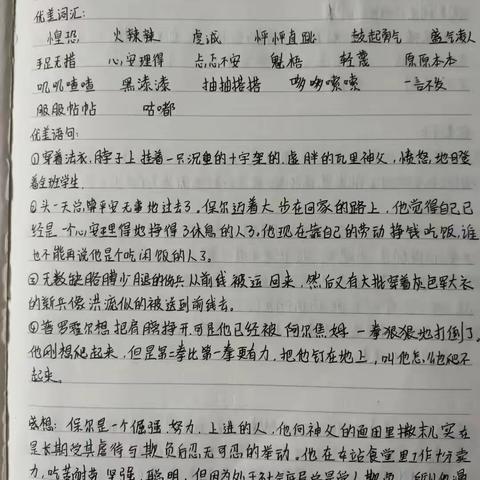 优美词汇:
惶恐 火辣辣 虔诚 怦怦直跳 鼓起勇气 盛气凌人
手足无措 心安理得 忐忑不安 魁梧 轻蔑 原原本本
叽叽喳喳 黑漆漆 抽抽搭搭 哆哆嗦嗦 一言不发
服服帖帖 咕嘟
优美语句:
①穿着法衣,脖子上挂着一只沉重的十字架的,虚胖的瓦里神父,愤怒地瞪
着全班学生.
②头一天总算平安无事地过去了,保尔迈着大步在回家的路上,他觉得自己已
经是一个心安理得地挣得了休息的人了,他现在靠自己的劳动挣钱吃饭,谁
也不能再说他是个吃闲饭的人了。
③无数缺胳膊少腿的伤兵从前线被运回来,然后又有大批穿着灰色军大衣
的新兵像洪流似的被送到前线去。
④普罗霍尔想把肩膀挣开,可是他已经被阿尔焦姆一拳狠狠地打倒了。
他刚想爬起来,但是第二拳比第一拳更有力,把他钉在地上,叫他怎么也爬不
起来。
感想:保尔是一个倔强、努力、上进的人,他向神父的面团里撒末儿实在
是长期受其虐待与欺负自忍无可忍的举动。他在车站食堂里工作十分卖
力,吃苦耐劳 坚强、聪明,但因为处于社会底层总是受人欺负